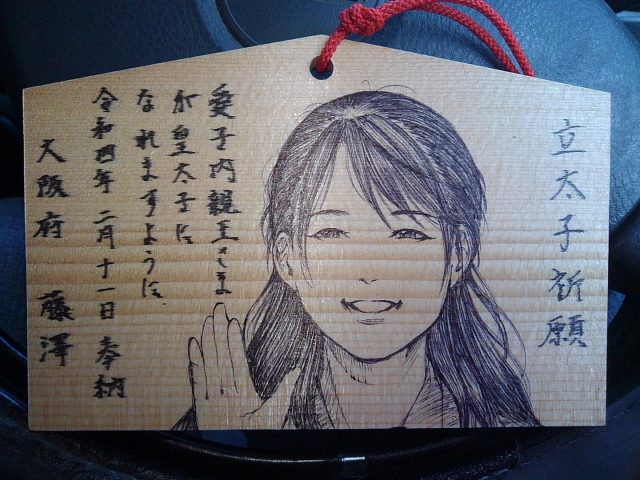 立太子祈願
愛子内親王さま
が皇太子に
なれますように。
令和四年 二月十一日 奉納
大阪府 藤澤